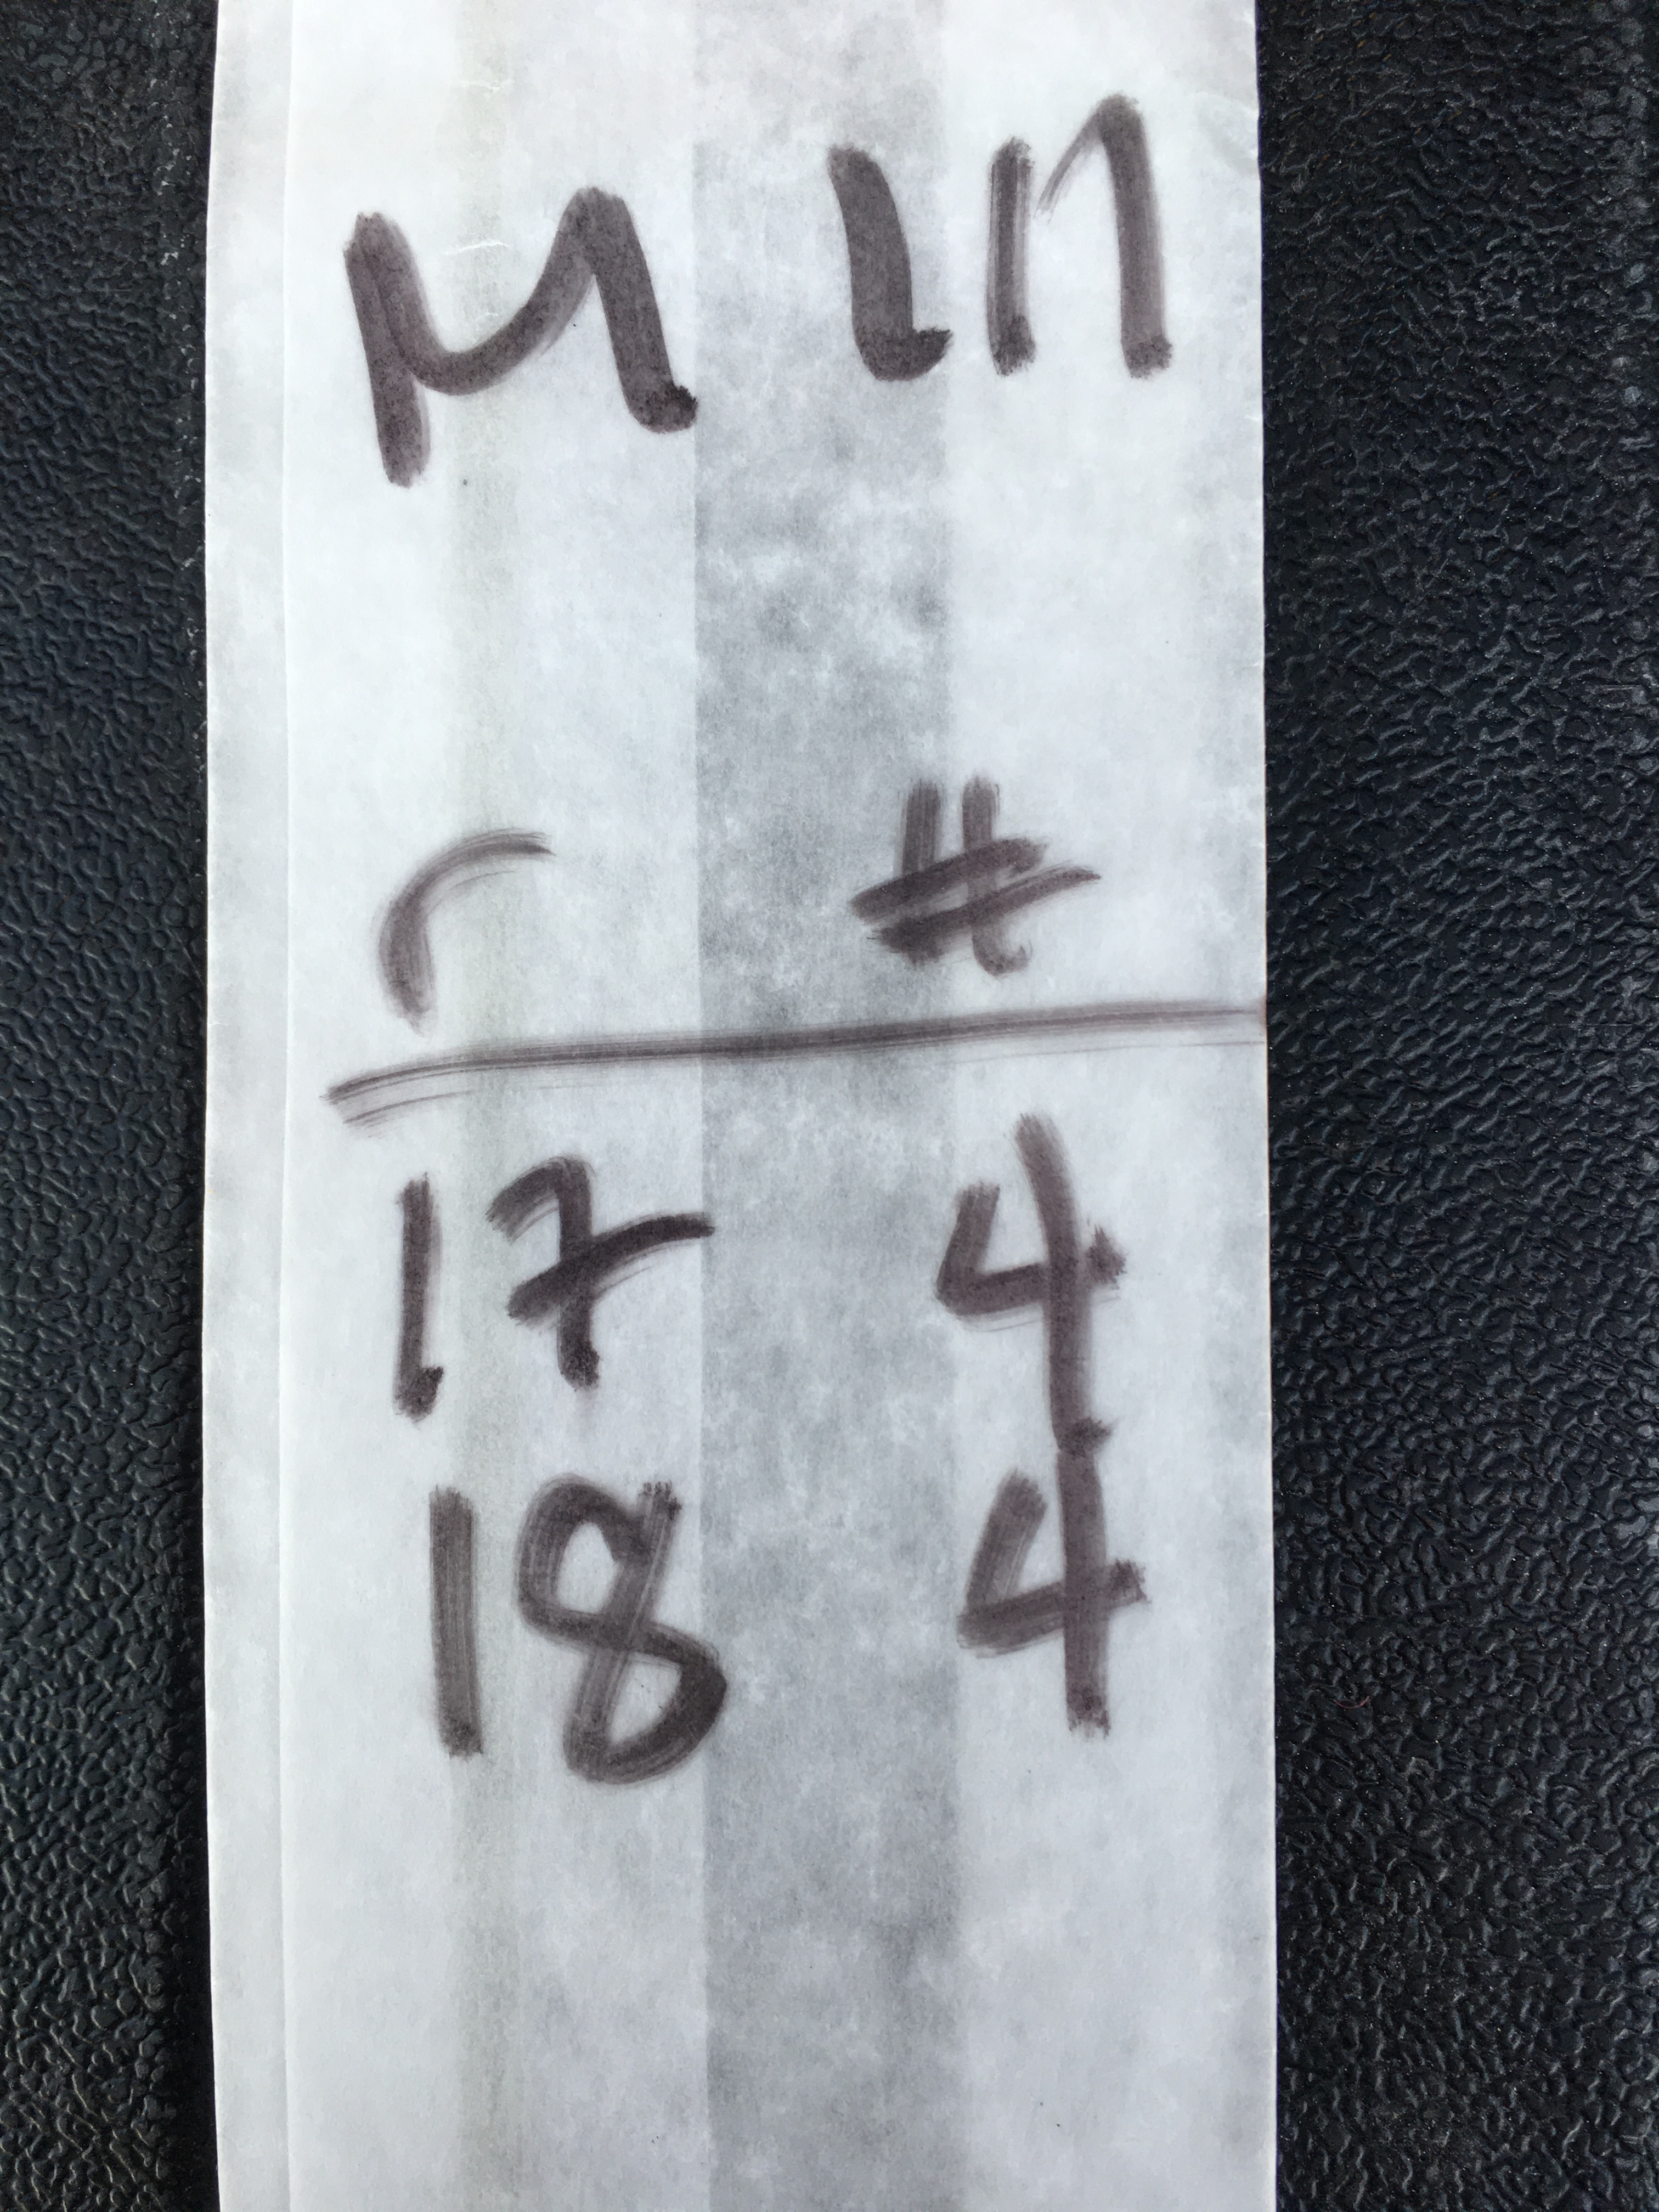 M in
r #
17 4
18 4